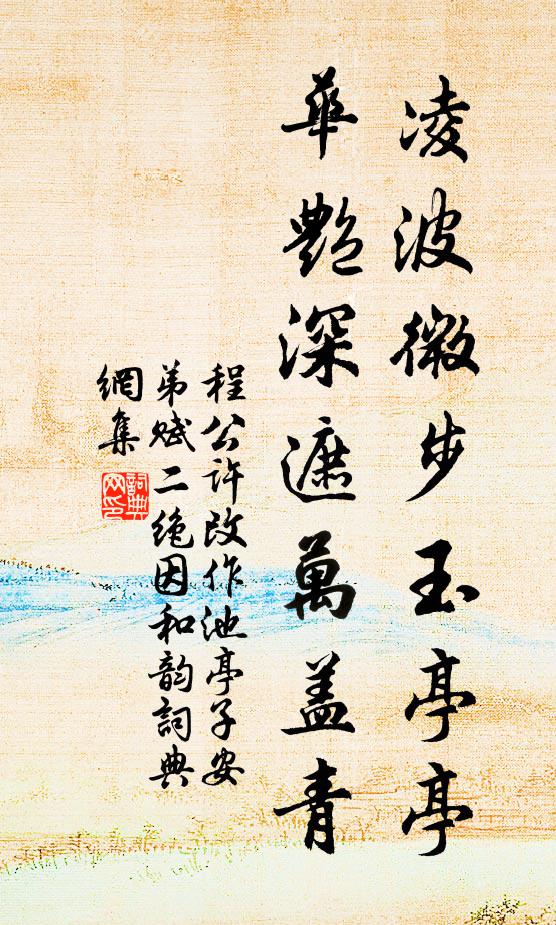 凌波微步玉亭亭
華艷深遮萬蓋青
程公許改作池亭子安
弟賦二絕因和韵詞典
網集
詞典
网印